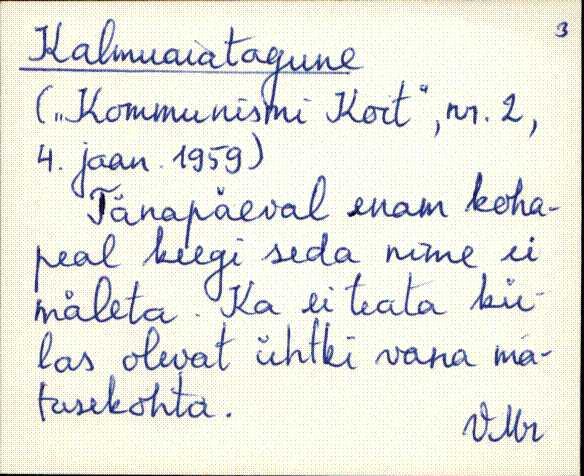 3
Kalmuaiatagune
(„Kommunismi Koit", nr. 2,
4. jaan. 1959)
Tänapäeval enam koha-
peal keegi seda nime ei
mäleta. Ka ei teata kü-
las olevat ühtki vana ma-
tusekohta.
VMr